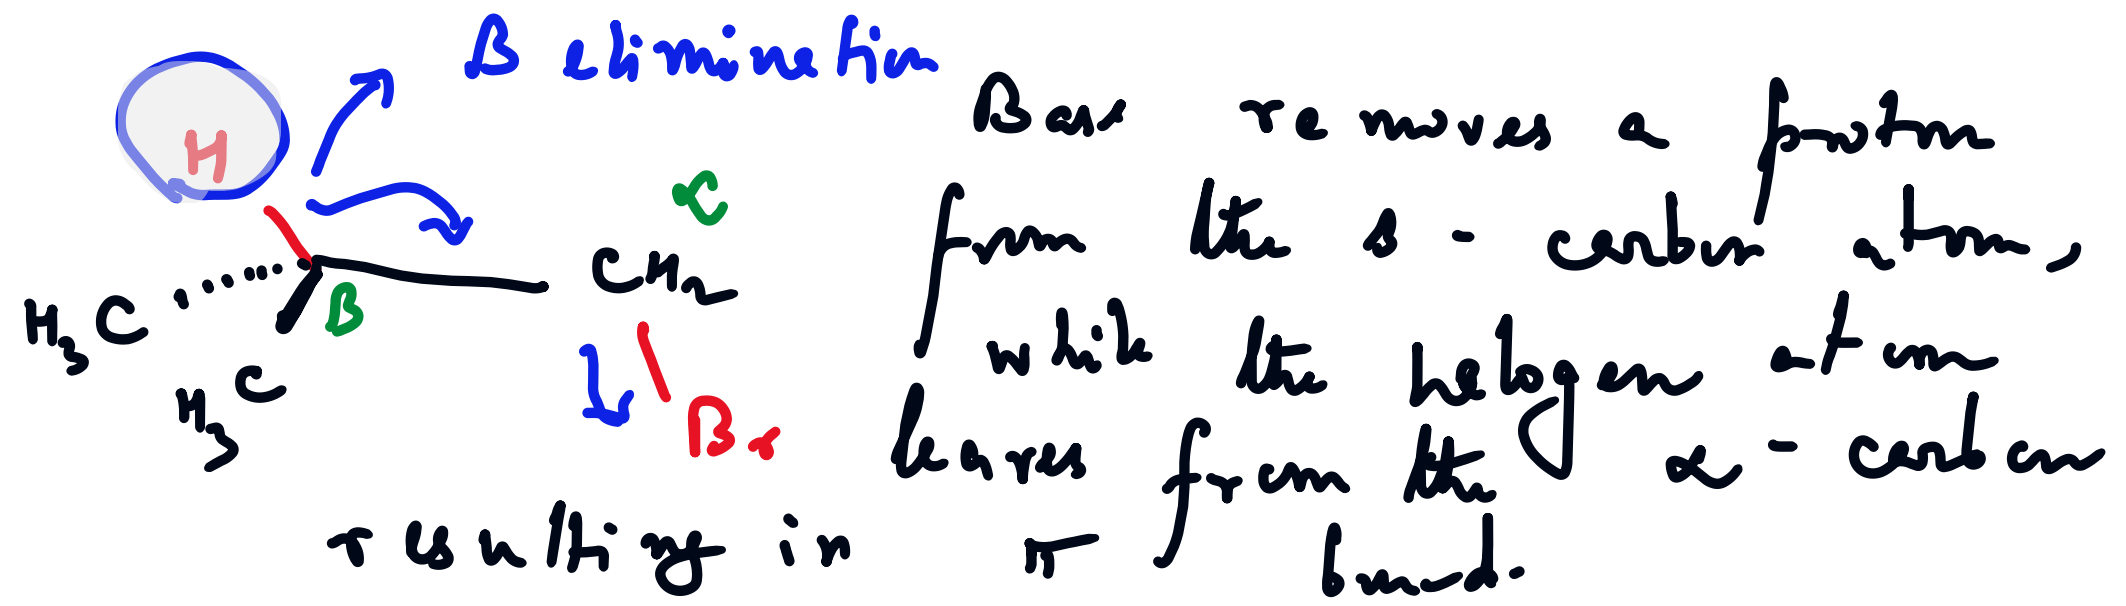 B elimination
H
α
CH2
B
H3C
H3C
Br
Base removes a proton
from the β - carbon atom,
while the halogen atom
leaves from the α - carbon
resulting in π bond.